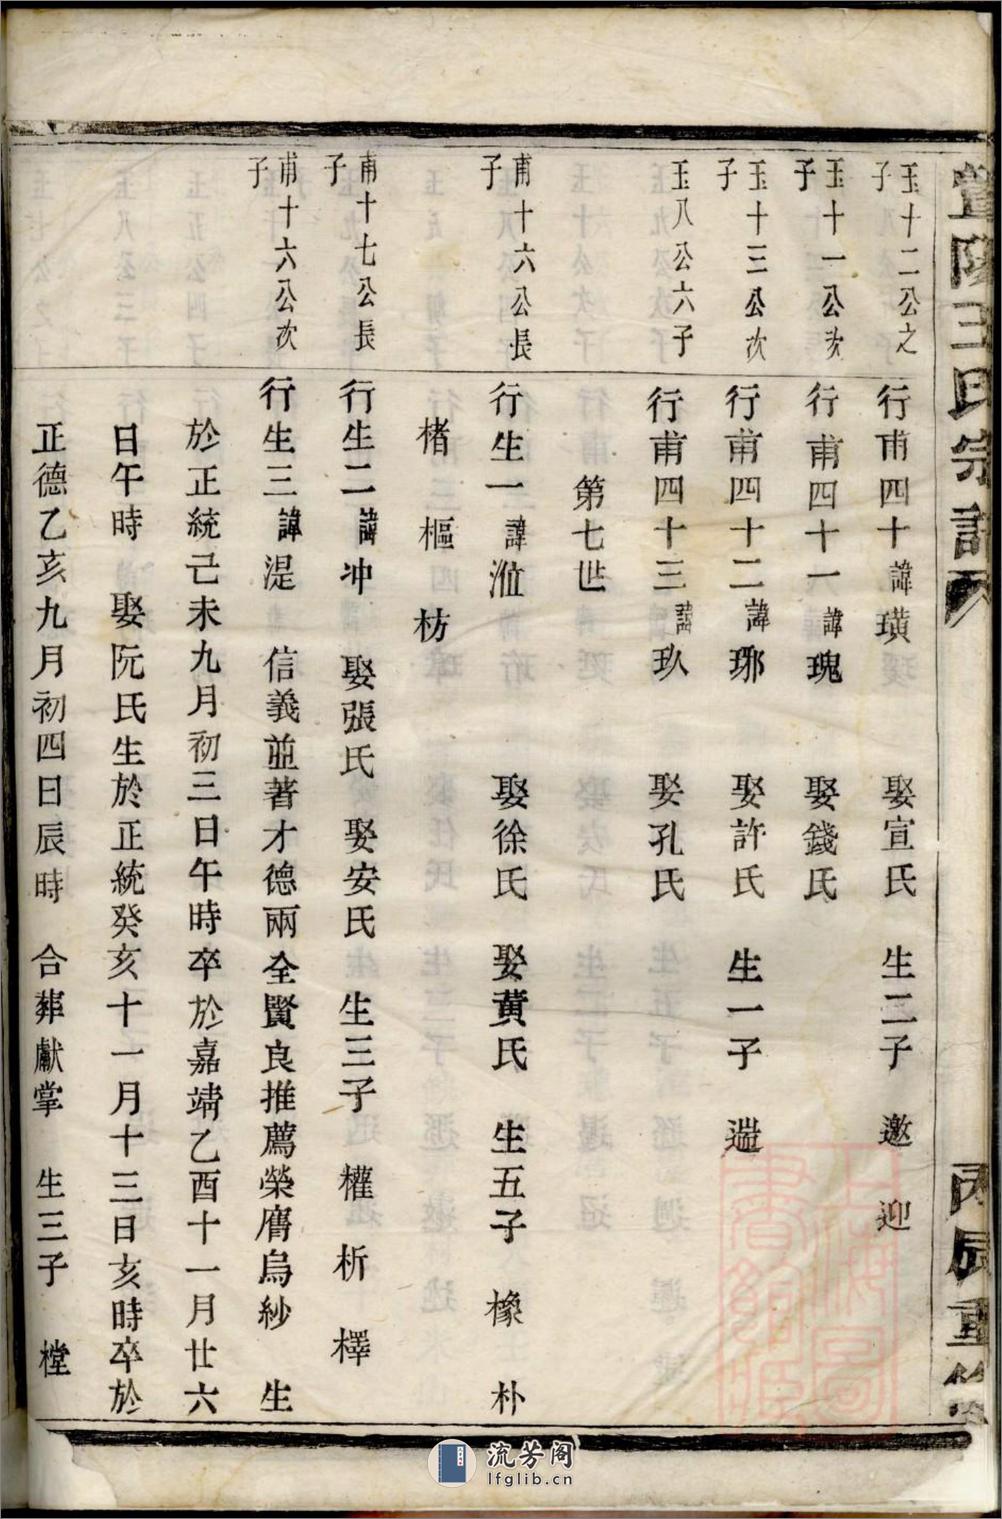 陽王氏宗譜
丙辰重
玉十二公之子
行甫四十諱璜 娶宣氏 生二子 邀 迎
玉十一公次子
行甫四十一諱瑰 娶錢氏
玉十三公次子
行甫四十二諱琊 娶許氏 生一子 遄
玉八公六子
行甫四十三諱玖 娶孔氏
第七世
甫十六公長子
行生一諱 娶徐氏 娶黄氏 生五子 橡 朴
楮 樞 枋
甫十七公長子
行生二諱冲 娶張氏 娶安氏 生三子 權 析 檡
甫十六公次子
行生三諱湜 信義並著才德兩全賢良推薦榮膺烏紗 生
於正統己未九月初三日午時卒於嘉靖乙酉十一月廿六
日午時 娶阮氏生於正統癸亥十一月十三日亥時卒於
正德乙亥九月初四日辰時 合葬獻掌 生三子 樘
上海圖書館藏
流芳阁
lfglib.cn